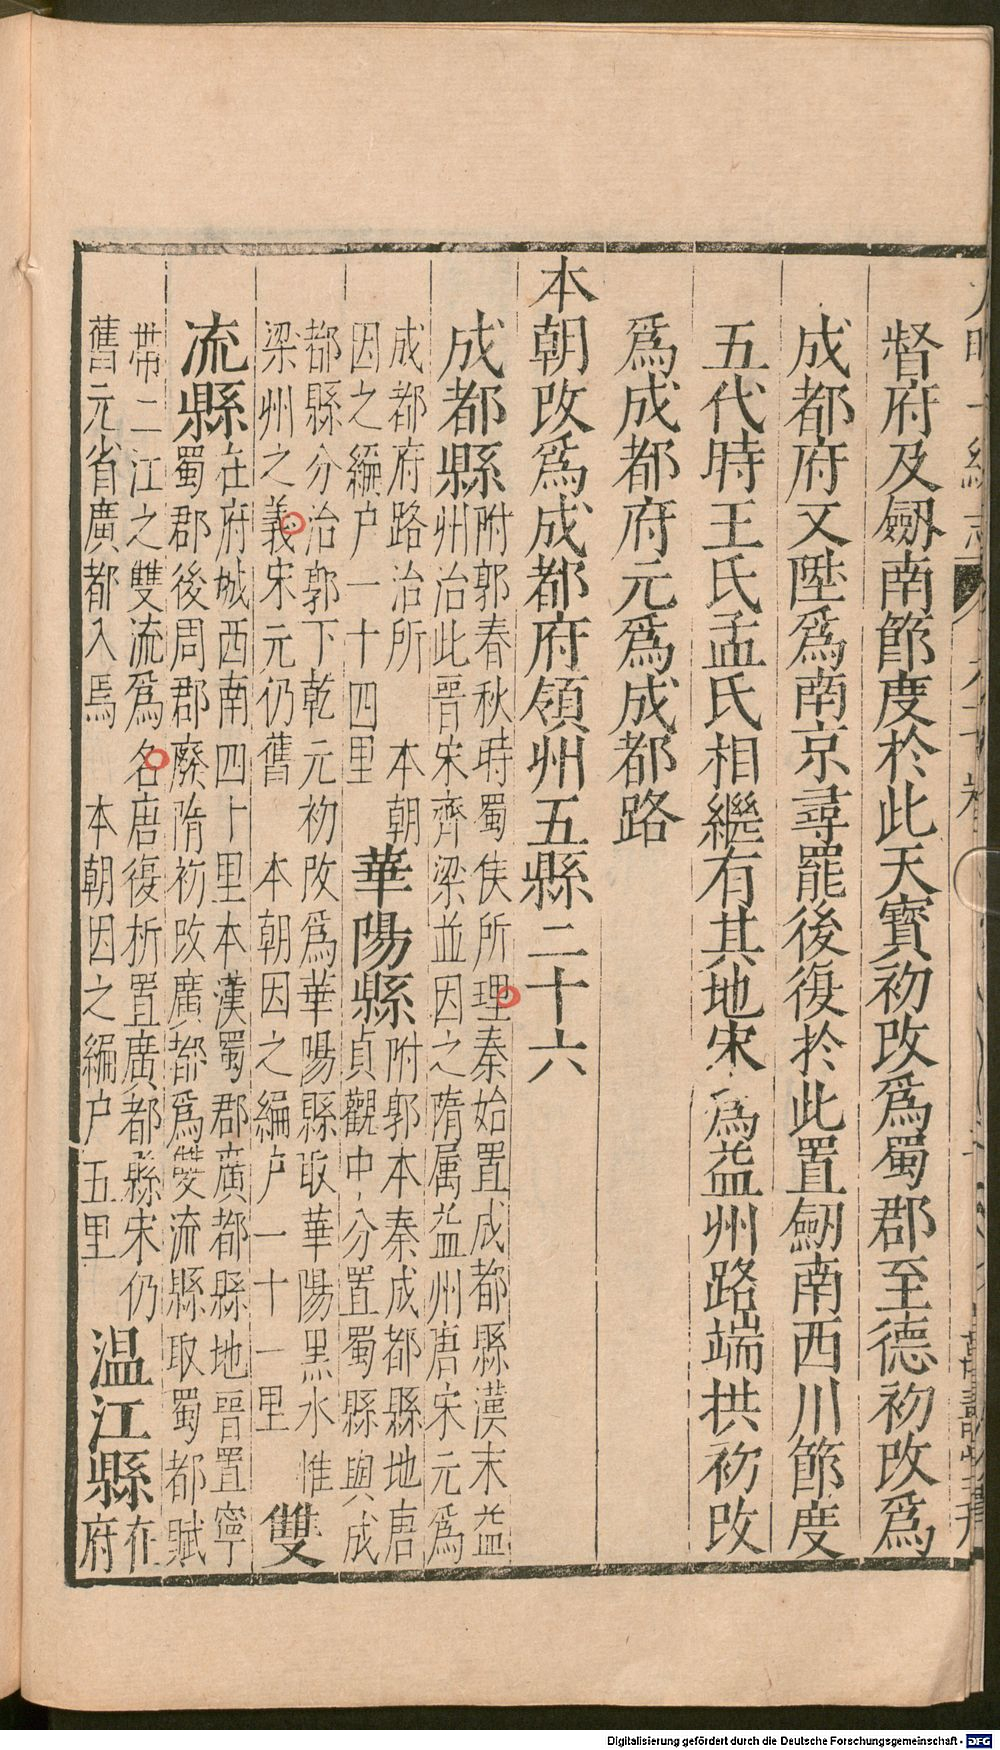 督府及劒南節度於此天寶初改爲蜀郡至德初改爲
成都府又陞爲南京尋罷後復於此置劒南西川節度
五代時王氏孟氏相繼有其地宋爲益州路端拱初改
爲成都府元爲成都路
本朝改爲成都府領州五縣二十六
成都縣
附郭春秋時蜀侯所理秦始置成都縣漢末益
州治此晉宋齊梁並因之隋属益州唐宋元爲
成都府路治所 本朝
因之編户一十四里
華陽縣
附郭本秦成都縣地唐
貞觀中分置蜀縣與成
都縣分治郭下乾元初改爲華陽縣取華陽黑水惟
梁州之義宋元仍舊 本朝因之編户一十一里
雙
流縣
在府城西南四十里本漢蜀郡廣都縣地晉置寧
蜀郡後周郡廢隋初改廣都爲雙流縣取蜀都賦
帶二江之雙流爲名唐復析置廣都縣宋仍
舊元省廣都入焉 本朝因之編户五里
温江縣
在
府
Digitalisierung gefördert durch die Deutsche Forschungsgemeinschaft - DFG